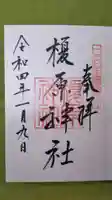 奉拝
榎原神社
令和四年一月九日